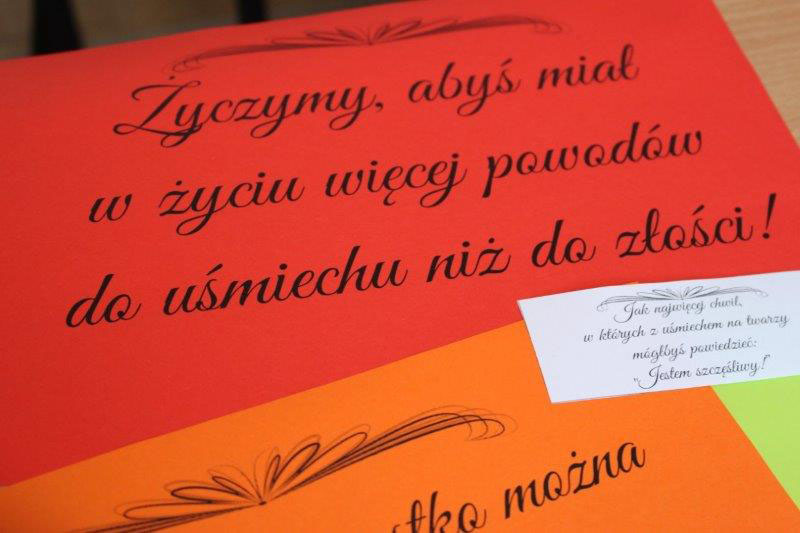 Życzymy, abyś miał
w życiu więcej powodów
do uśmiechu niż do złości!
Jak najwięcej chwil,
w których z uśmiechem na twarzy
mógłbyś powiedzieć:
"Jestem szczęśliwy!"
można